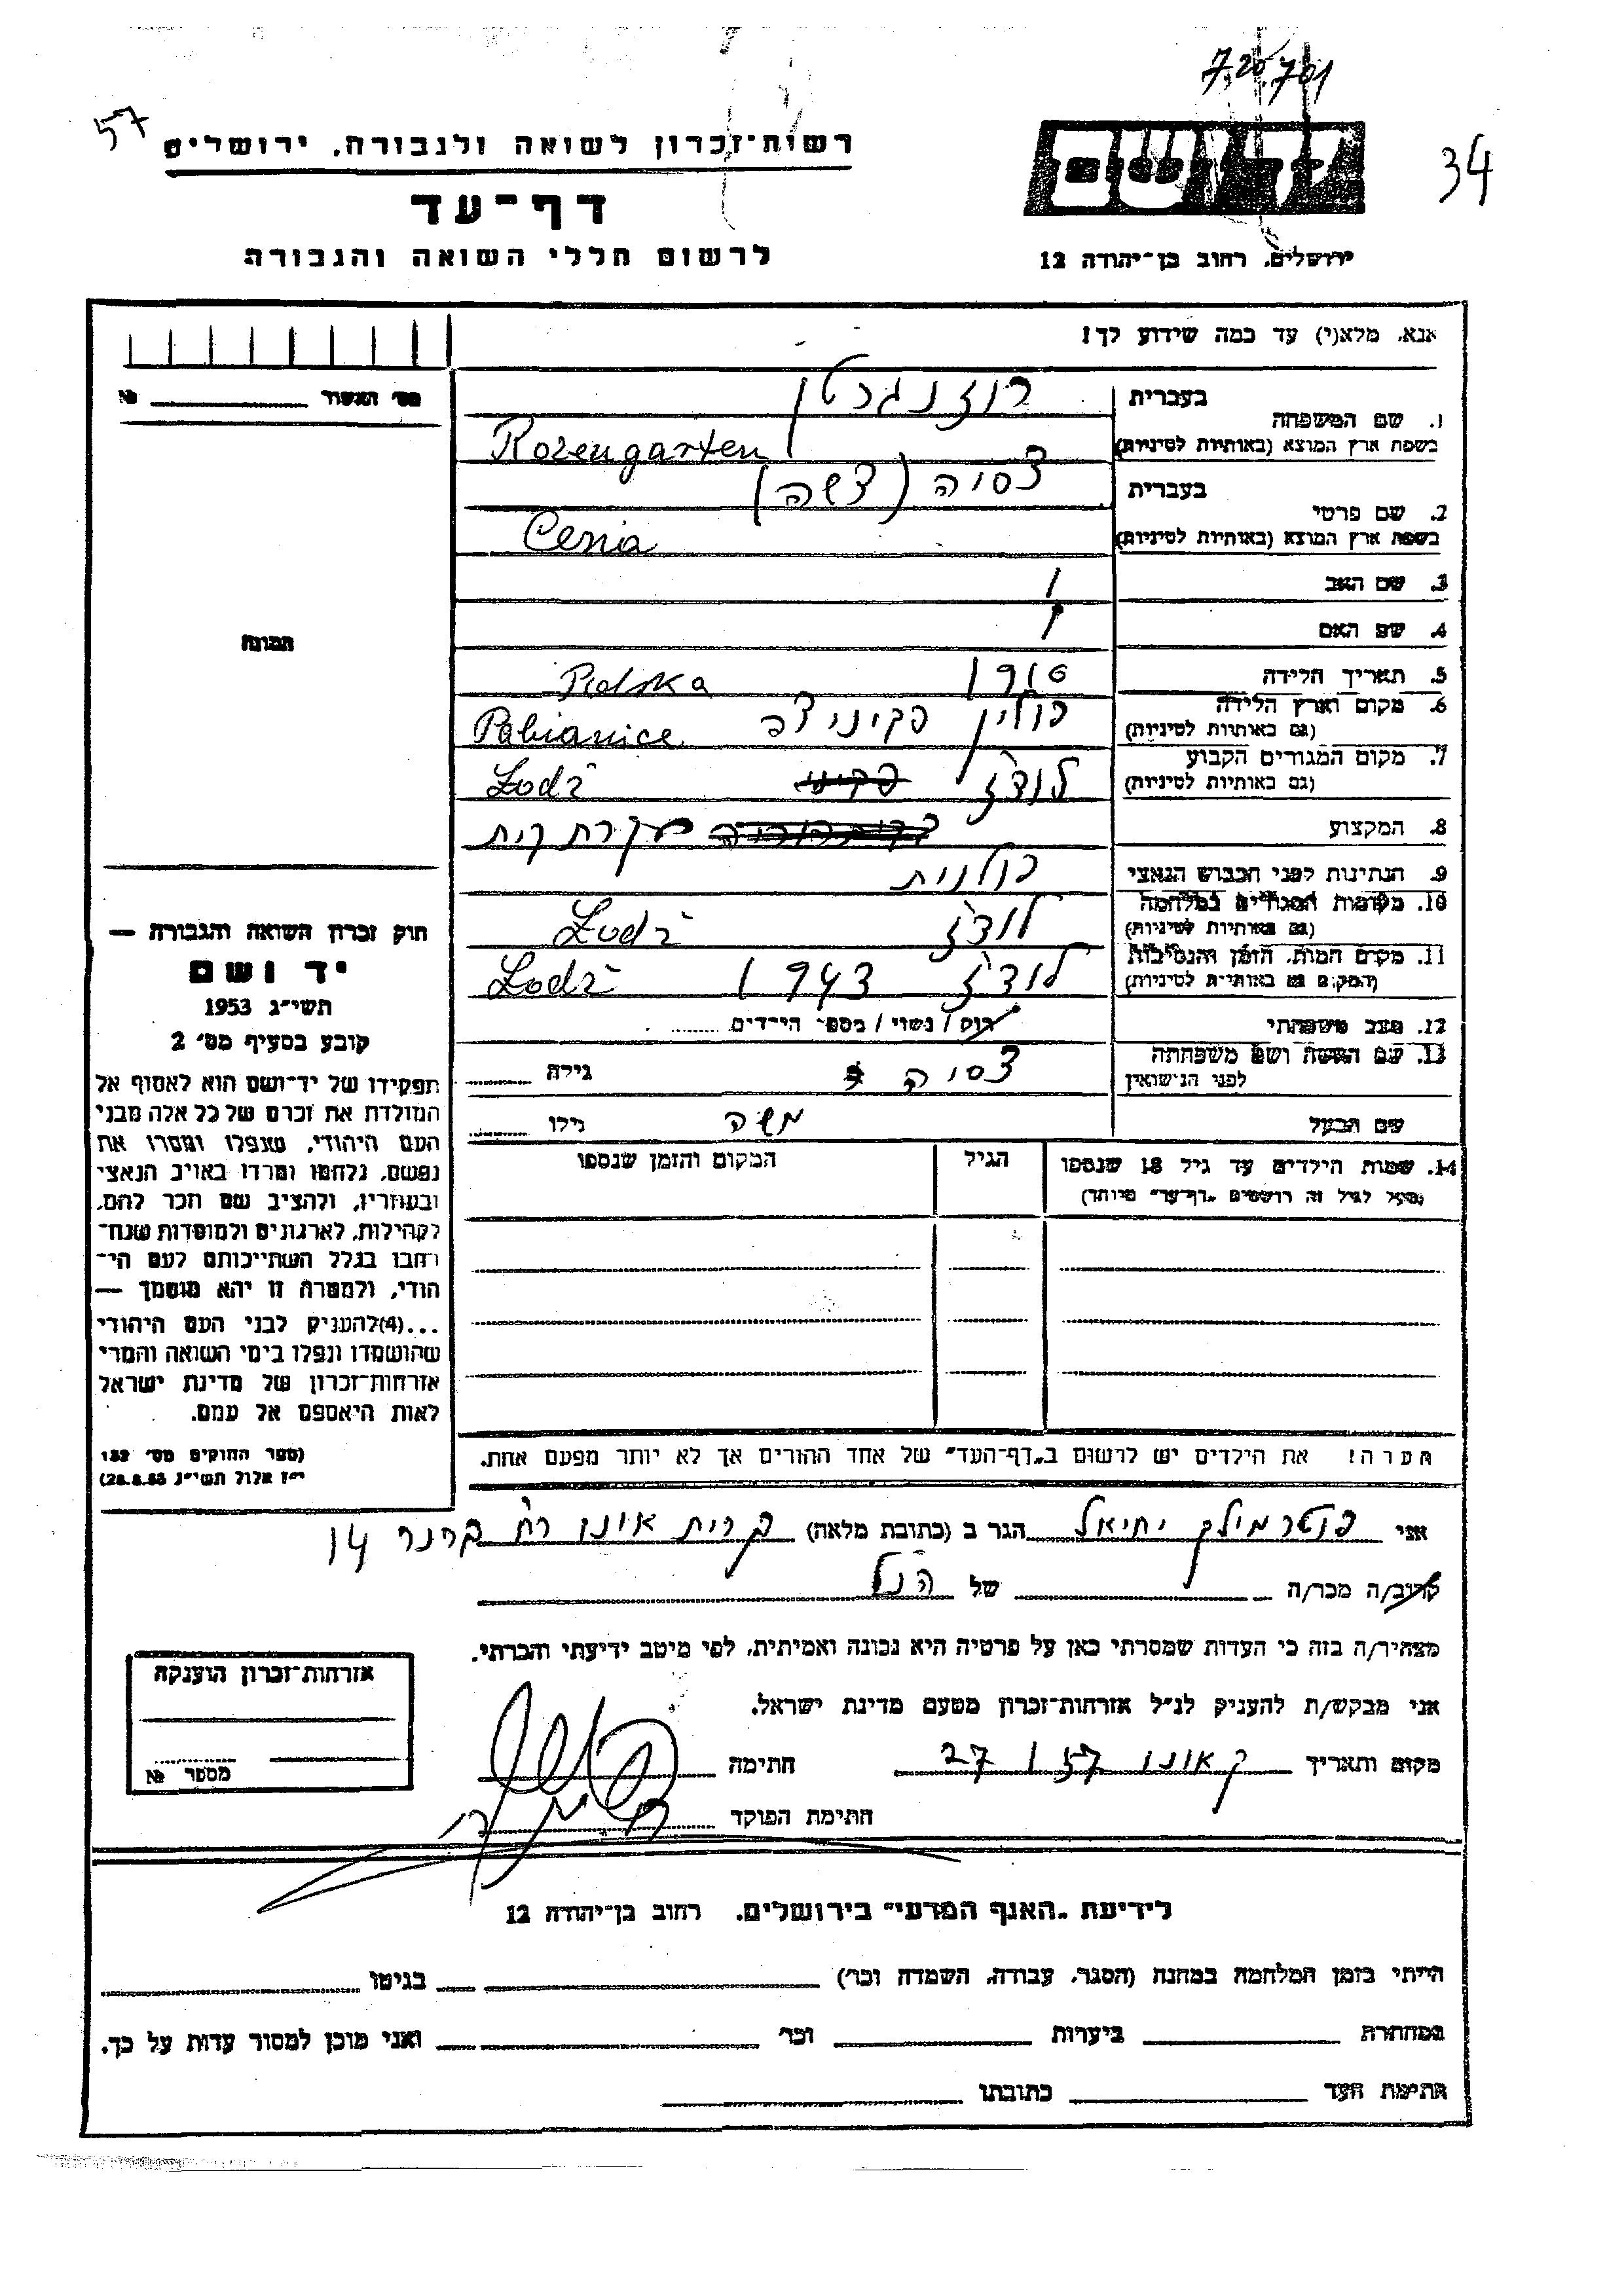 7.20.701
57
34
רשות־זכרון לשואה ולגבורה, ירושלים
דף־עד
לרשום חללי השואה והגבורה
יד ושם
ירושלים, רחוב בן־יהודה 12
אנא, מלא(י) עד כמה שידוע לך!
מס׳ האשור №
1. שם המשפחה
בעברית רוזנגרטן
בשפת ארץ המוצא (באותיות לטיניות) Rozengarten
2. שם פרטי
בעברית צסיה (צשה)
בשפת ארץ המוצא (באותיות לטיניות) Cesia
3. שם האב /
4. שם האם /
5. תאריך הלידה 1910
6. מקום וארץ הלידה (גם באותיות לטיניות) פולין פביניצה Polska Pabianice
7. מקום המגורים הקבוע (גם באותיות לטיניות) לודז Lodź
8. המקצוע עקרת בית
9. הנתינות לפני הכבוש הנאצי פולנית
10. מקומות המגורים במלחמה (גם באותיות לטיניות) לודז Lodź
11. מקום המות, הזמן והנסיבות (המקום גם באותיות לטיניות) לודז 1943 Lodź
12. מצב משפחתי רווק / נשוי / מספר הילדים
13. שם האשה ושם משפחתה לפני הנישואין צסיה גילה
שם הבעל משה גילו
14. שמות הילדים עד גיל 18 שנספו
(מעל לגיל זה רושמים „דף־עד״ מיוחד)
הגיל
המקום והזמן שנספו
הערה! את הילדים יש לרשום ב„דף־העד״ של אחד ההורים אך לא יותר מפעם אחת.
תמונה
חוק זכרון השואה והגבורה —
יד ושם
תשי״ג 1953
קובע בסעיף מס׳ 2
תפקידו של יד־ושם הוא לאסוף אל
המולדת את זכרם של כל אלה מבני
העם היהודי, שנפלו ומסרו את
נפשם, נלחמו ומרדו באויב הנאצי
ובעוזריו, ולהציב שם וזכר להם,
לקהילות, לארגונים ולמוסדות שנח־
רבו בגלל השתייכותם לעם הי־
הודי, ולמטרה זו יהא מוסמך —
...(4) להעניק לבני העם היהודי
שהושמדו ונפלו בימי השואה והמרי
אזרחות־זכרון של מדינת ישראל
לאות היאספם אל עמם.
(ספר החוקים מס׳ 132
י״ז אלול תשי״ג 28.8.53)
אני פוטרמילק יחיאל הגר ב (כתובת מלאה) קרית אונו רח׳ 14
קרוב/ה מכר/ה של הנ״ל
מצהיר/ה בזה כי העדות שמסרתי כאן על פרטיה היא נכונה ואמיתית, לפי מיטב ידיעתי והכרתי.
אני מבקש/ת להעניק לנ״ל אזרחות־זכרון מטעם מדינת ישראל.
מקום ותאריך ק אונו 27 1 57 חתימה
חתימת הפוקד
אזרחות־זכרון הוענקה
מספר №
לידיעת „האגף המדעי״ בירושלים, רחוב בן־יהודה 12
הייתי בזמן המלחמה במחנה (הסגר, עבודה, השמדה וכו׳) בגיטו
במחתרת ביערות וכו׳ ואני מוכן למסור עדות על כך.
חתימת העד כתובתו